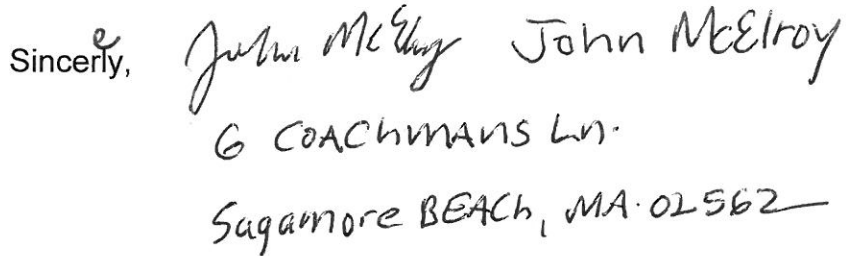 Sincerely, John McElroy John McElroy
6 COACHMANS Ln.
Sagamore BEACH, MA. 02562